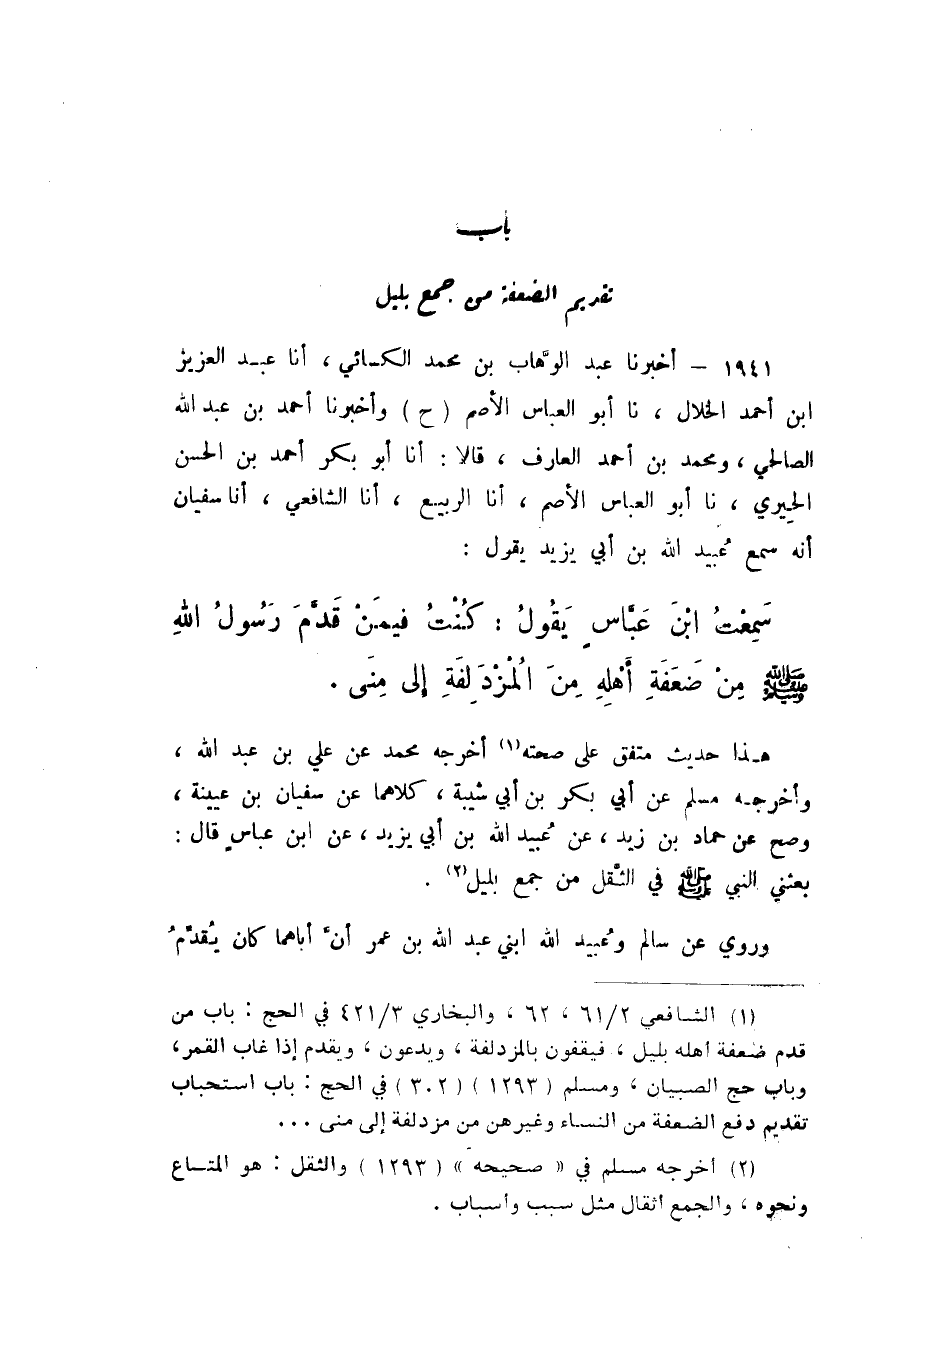 باب
تقديم الضعفة من جمع بليل
١٩٤١ – أخبرنا عبد الوهاب بن محمد الكسائي ، أنا عبد العزيز
ابن أحمد الخلال ، نا أبو العباس الأصم ( ح ) وأخبرنا أحمد بن عبد الله
الصالحي ، ومحمد بن أحمد العارف ، قالا : أنا أبو بكر أحمد بن الحسن
الحيري ، نا أبو العباس الأصم ، أنا الربيع ، أنا الشافعي ، أنا سفيان
أنه سمع عُبيد الله بن أبي يزيد يقول :
سَمِعْتُ ابْنَ عَبَّاسٍ يَقُولُ : كُنْتُ فيمَنْ قَدَّمَ رَسُولُ اللهِ
ﷺ مِنْ ضَعَفَةِ أَهْلِهِ مِنَ الْمُزْدَلِفَةِ إِلى مِنَى .
هـذا حديث متفق على صحته(١) أخرجه محمد عن علي بن عبد الله ،
وأخرجه مسلم عن أبي بكر بن أبي شيبة ، كلاهما عن سفيان بن عيينة ،
وصح عن حماد بن زيد ، عن عُبيد الله بن أبي يزيد ، عن ابن عباسٍ قال :
بعثني النبي ﷺ في الثَّقل من جمع بليل(٢) .
وروي عن سالم وعُبيد الله ابني عبد الله بن عمر أنَّ أباهما كان يُقدِّمُ
(١) الشافعي ٦١/٢ ، ٦٢ ، والبخاري ٤٢١/٣ في الحج : باب من
قدم ضعفة أهله بليل ، فيقفون بالمزدلفة ، ويدعون ، ويقدم إذا غاب القمر،
وباب حج الصبيان ، ومسلم ( ١٢٩٣ ) ( ٣٠٢ ) في الحج : باب استحباب
تقديم دفع الضعفة من النساء وغيرهن من مزدلفة إلى منى ...
(٢) أخرجه مسلم في « صحيحه » ( ١٢٩٣ ) والثقل : هو المتاع
ونحوه ، والجمع أثقال مثل سبب وأسباب .